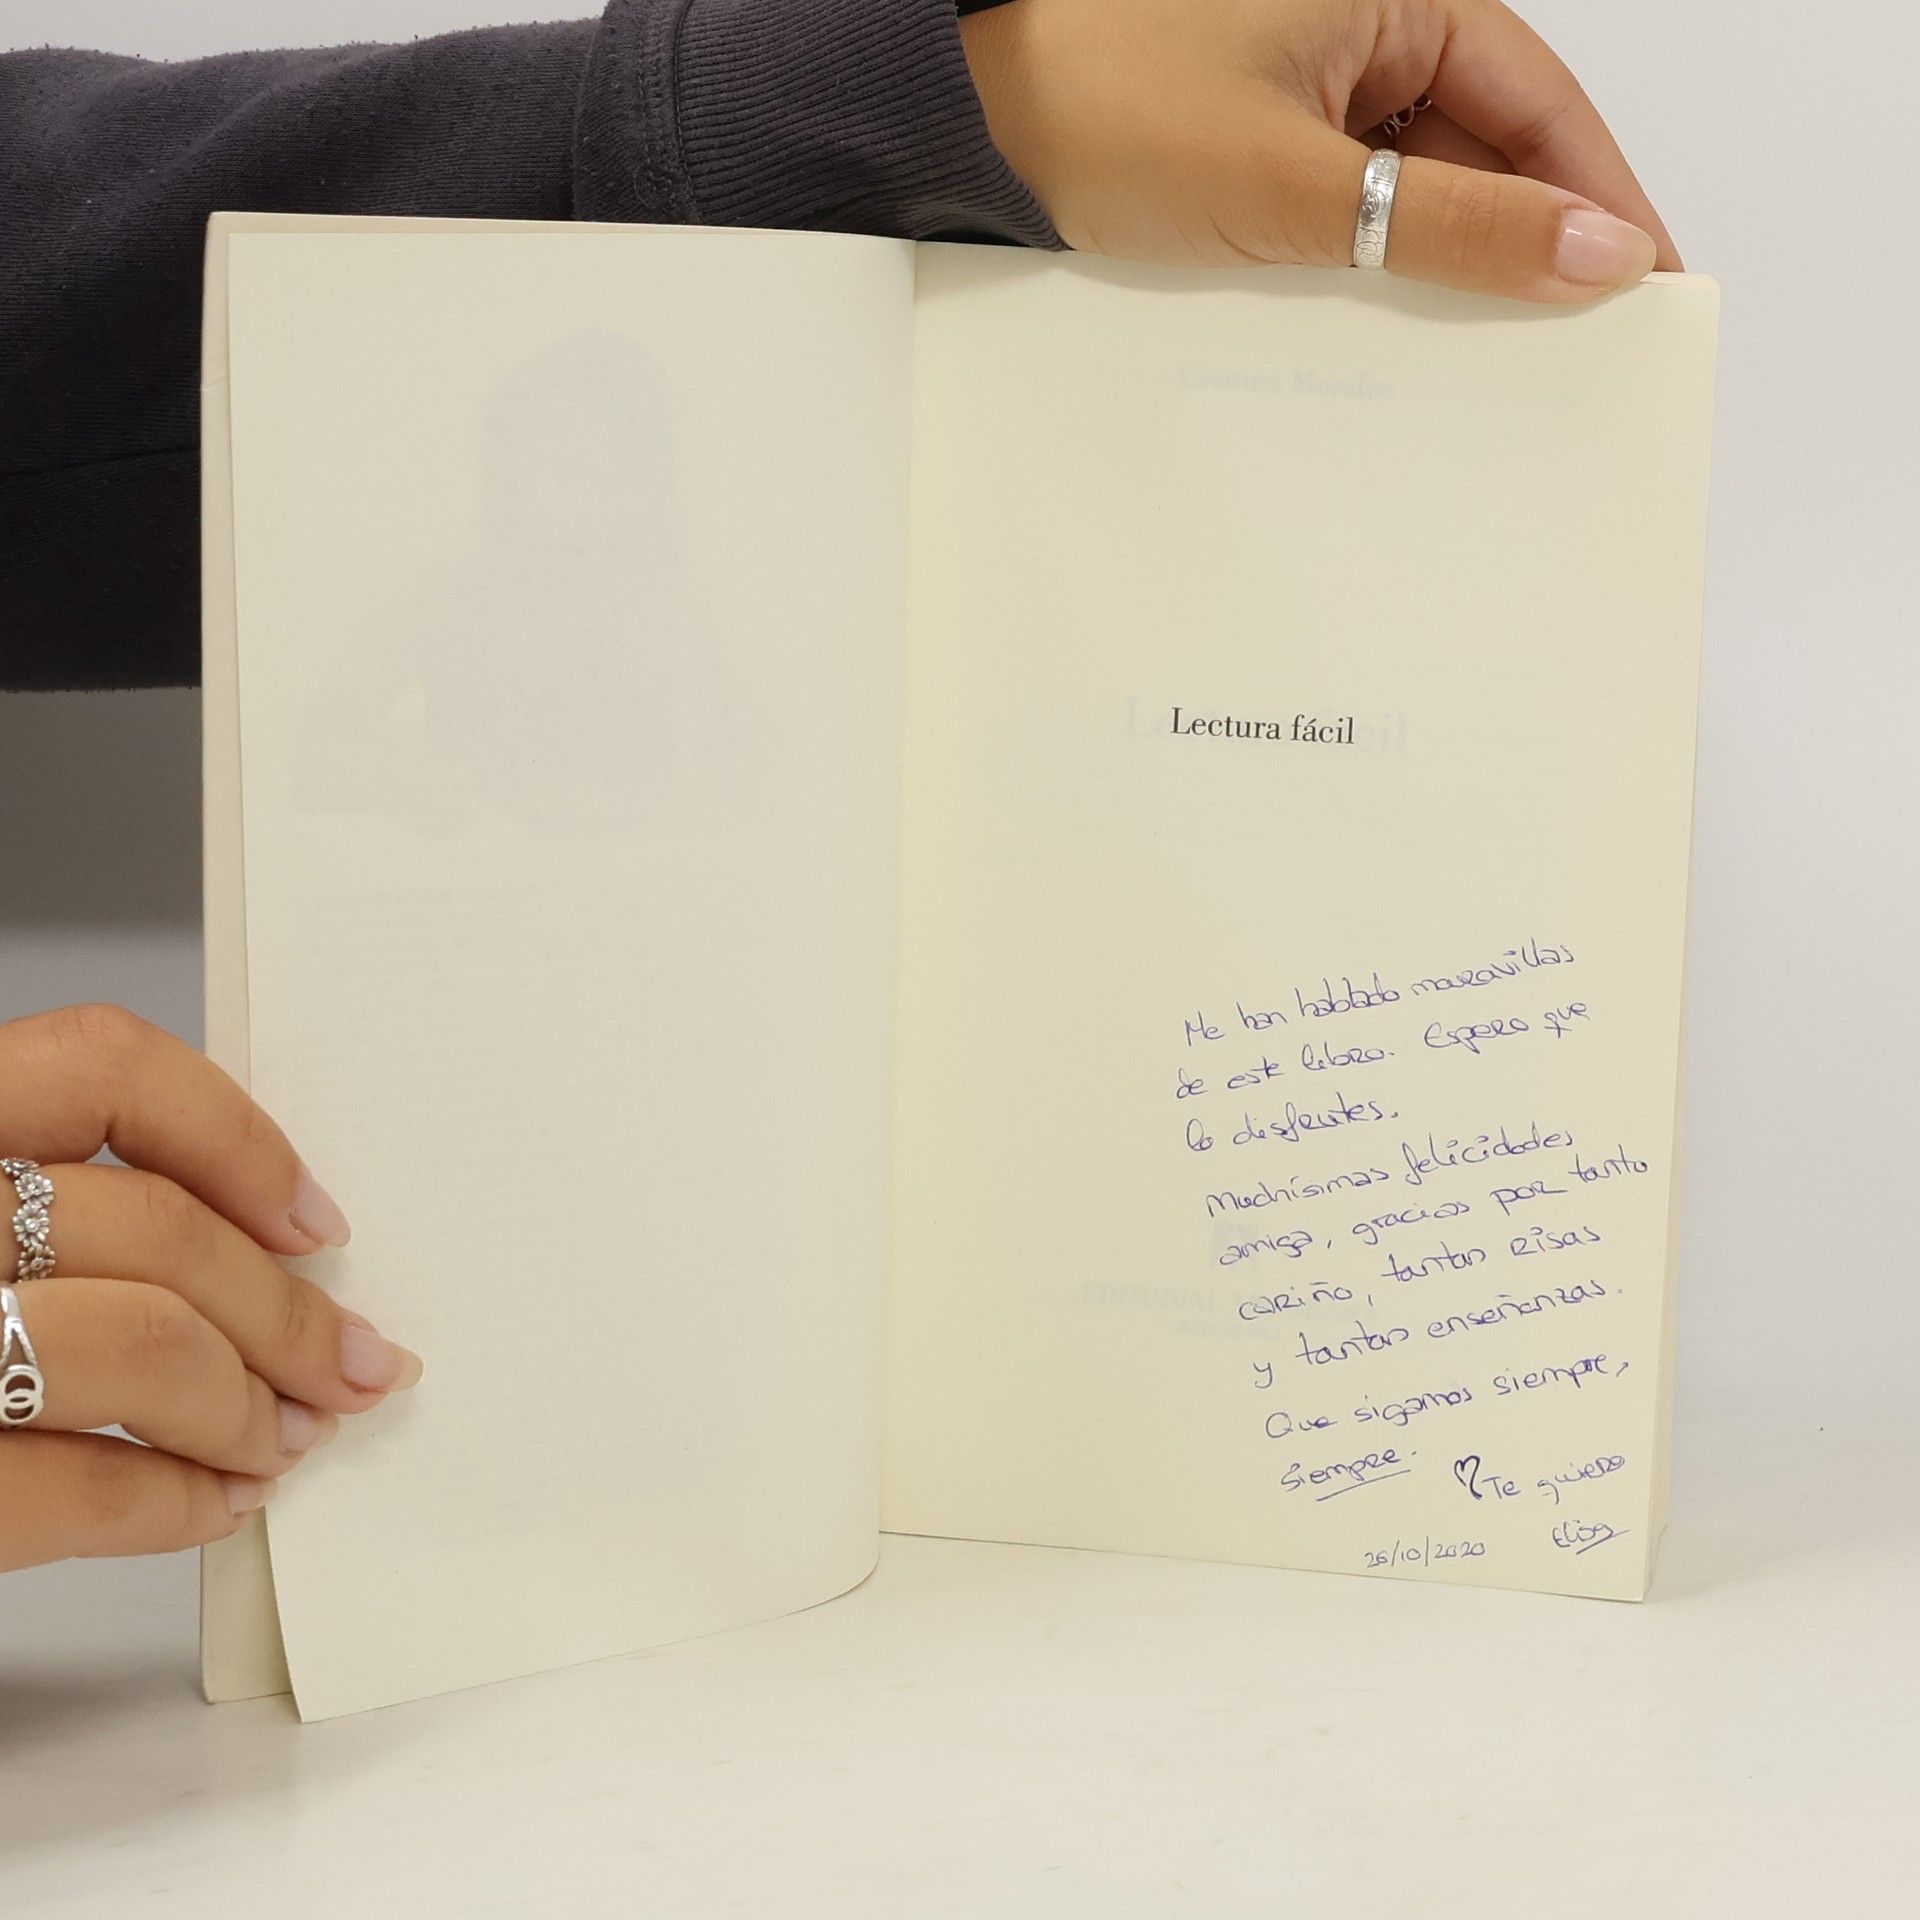 Cristina Morales
Lectura fácil
Lectura fácil
Me han hablado maravillas
de este libro. Espero que
lo disfrutes.
Muchísimas felicidades
amiga, gracias por tanto
cariño, tantas risas
y tantas enseñanzas.
Que sigamos siempre,
siempre. Te quiero
26/10/2020 Elisa